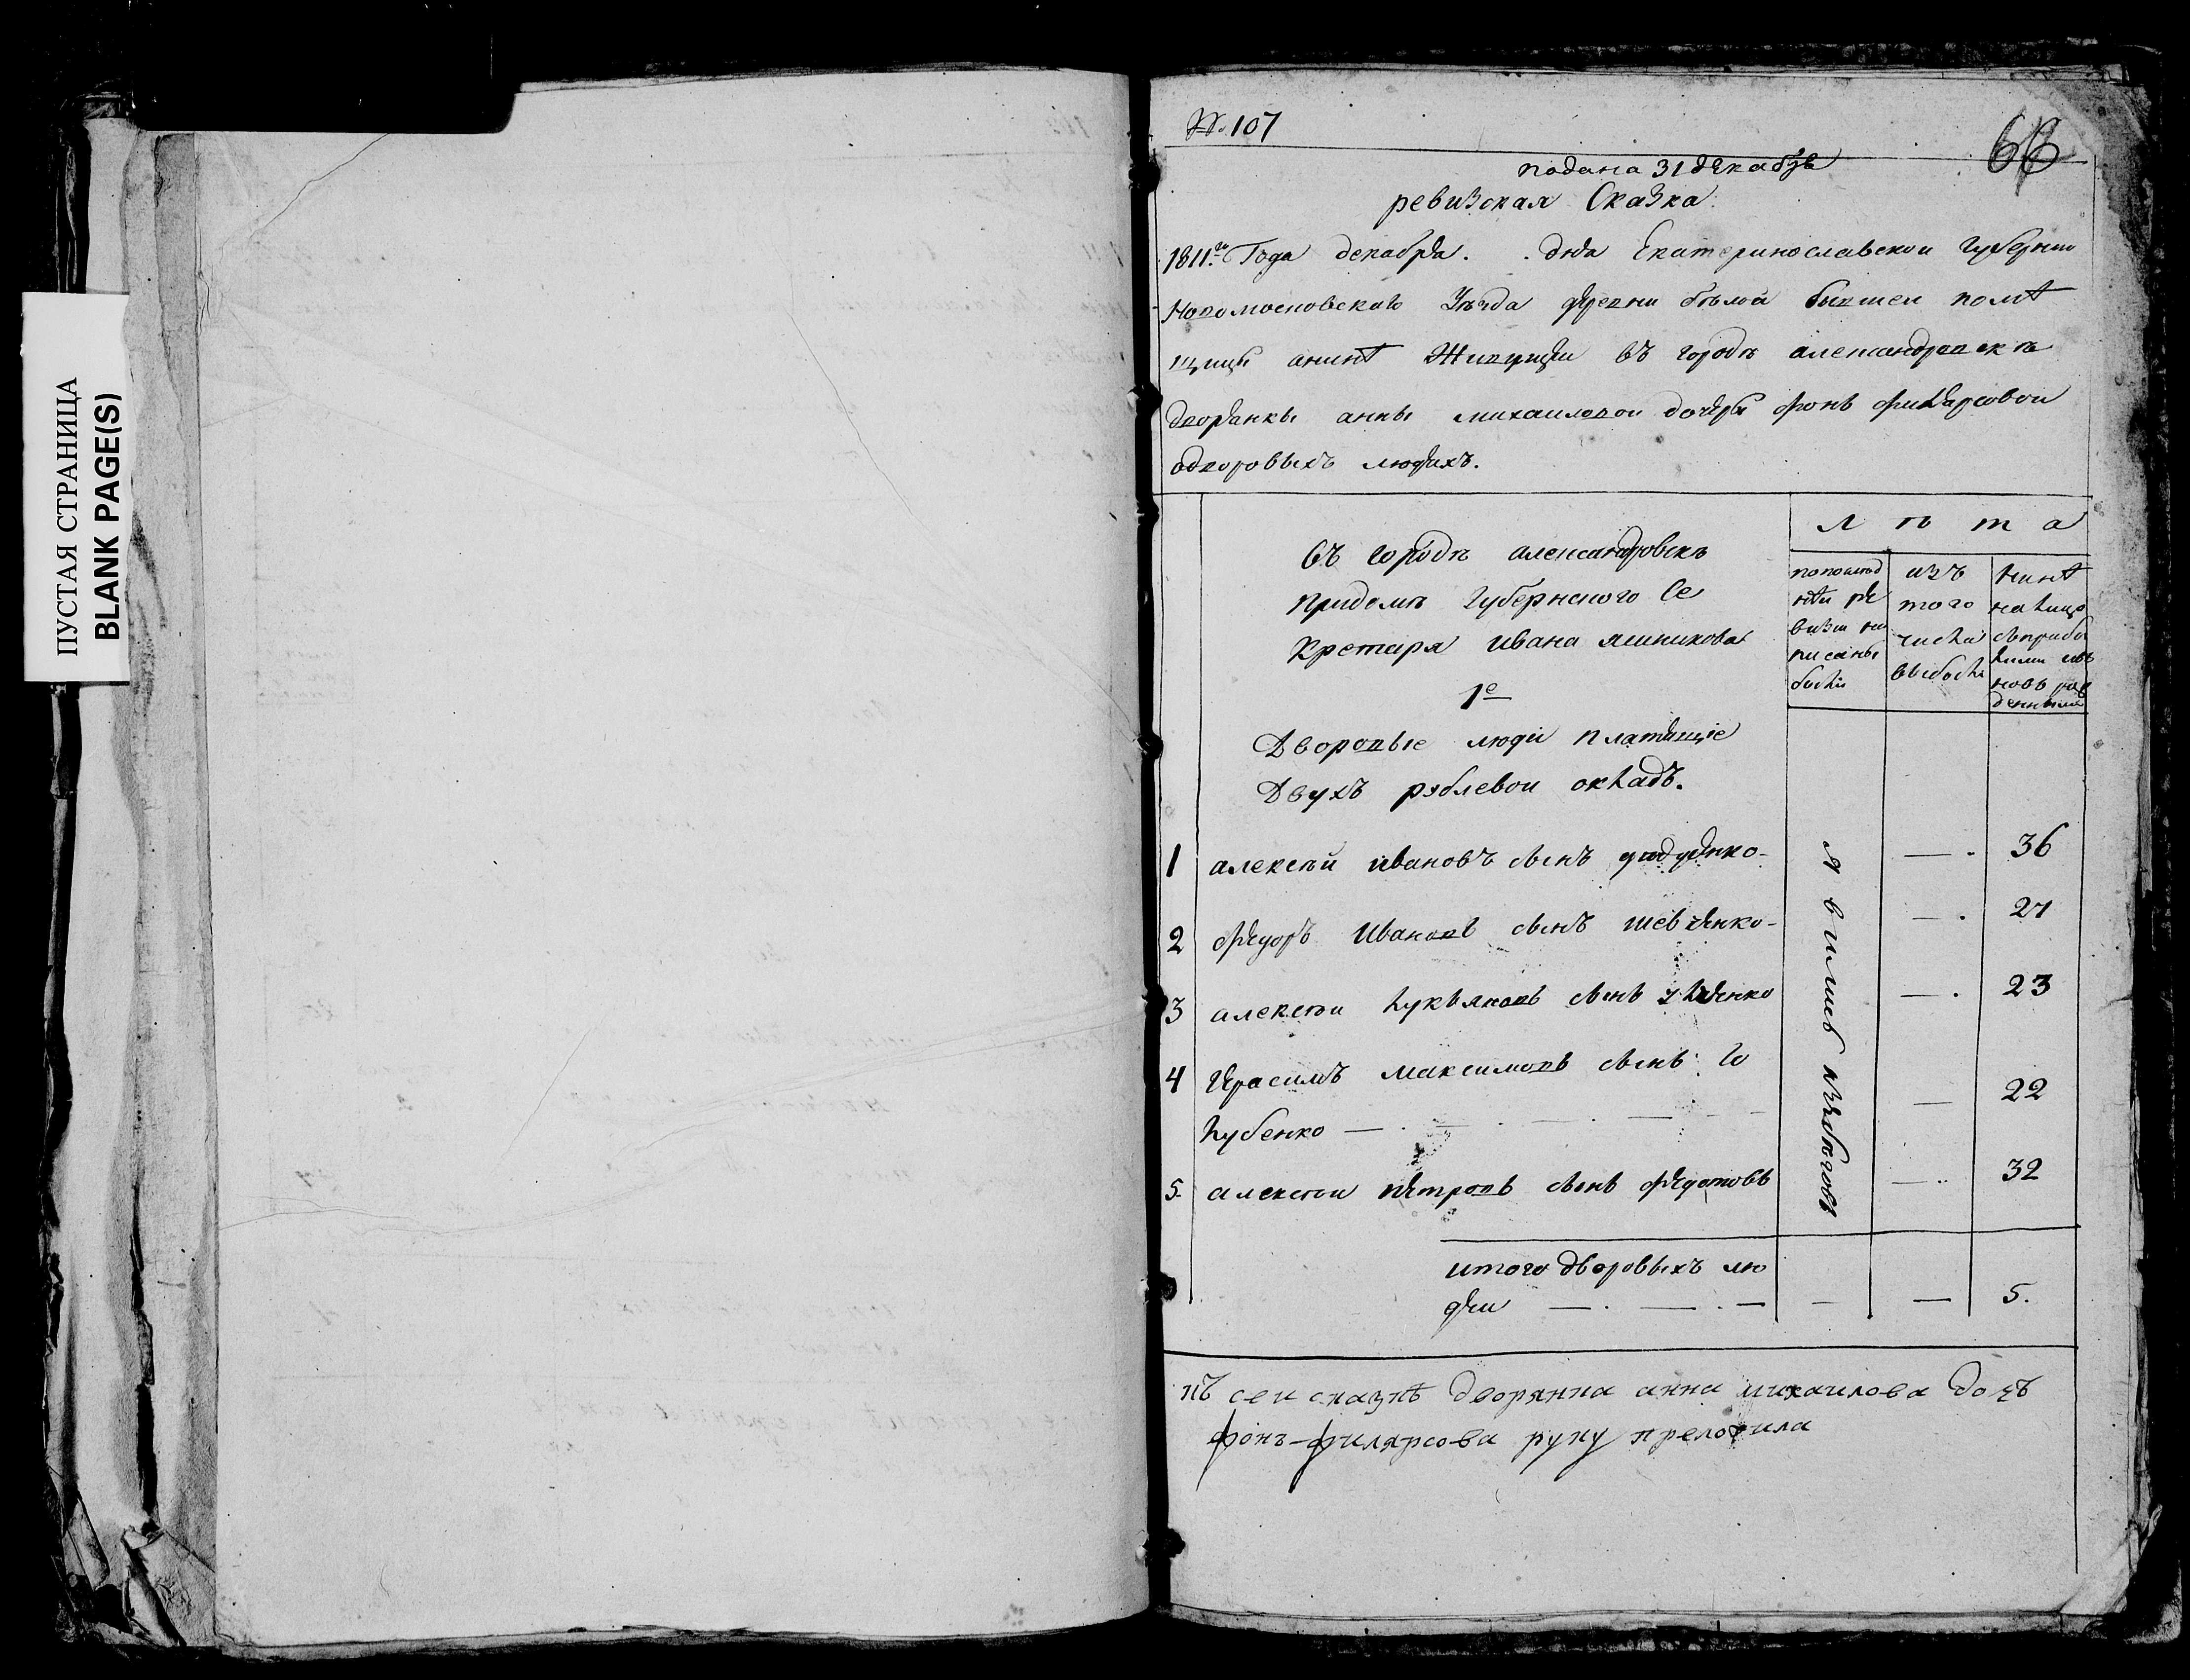 ПУСТАЯ СТРАНИЦА
BLANK PAGE(S)
№ 107
подана 31 декабря
ревизская Сказка.
1811го Года декабря . . дня Екатеринославской Губернии
Новомосковского Уезда деревни белой бывшей поме
щицы а ныне Живущей въ городе александровске
дворянки анны михаиловой дочери фонъ филярсовой
одворовыхъ людяхъ.
въ городе александровске
придоме Губернского Се
кретаря ивана
1е
Дворовые люди платящіе
Двухъ рублевой окладъ.
л ѣ т а
попослед
ней ре
визіи на
писаны
были
изъ
того
числа
выбыли
ныне
на лицо
съприбы
лыми и въ
новь рож
денными
1 алексѣй ивановъ сынъ — . 36
2 федоръ Ивановъ сынъ шевченко — . 21
3 алексѣи лукьяновъ сынъ — . 23
4 Герасимъ максимовъ сынъ Го
лубенко — 22
5. алексѣи петровъ сынъ федотовъ — 32
явившеся
итого дворовыхъ лю
деи — — 5.
къ сеи сказкѣ дворянка анна михаилова дочъ
фонъ-филярсова руку преложила